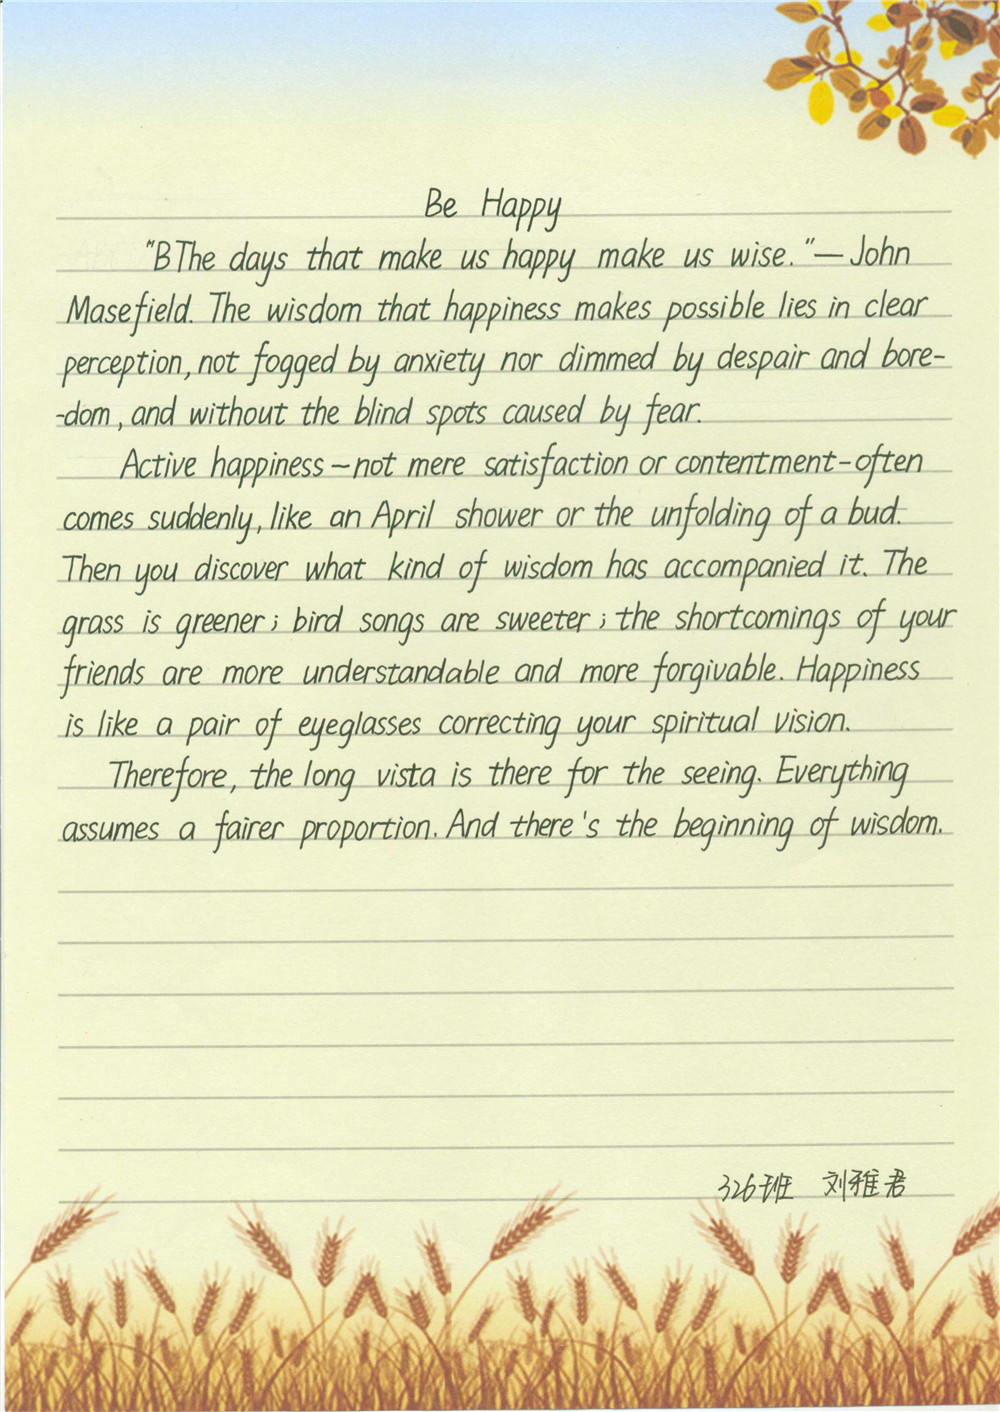 Be Happy
"BThe days that make us happy make us wise."—John
Masefield. The wisdom that happiness makes possible lies in clear
perception, not fogged by anxiety nor dimmed by despair and bore-
-dom, and without the blind spots caused by fear.
Active happiness–not mere satisfaction or contentment–often
comes suddenly, like an April shower or the unfolding of a bud.
Then you discover what kind of wisdom has accompanied it. The
grass is greener; bird songs are sweeter; the shortcomings of your
friends are more understandable and more forgivable. Happiness
is like a pair of eyeglasses correcting your spiritual vision.
Therefore, the long vista is there for the seeing. Everything
assumes a fairer proportion. And there's the beginning of wisdom.
326班 刘雅君